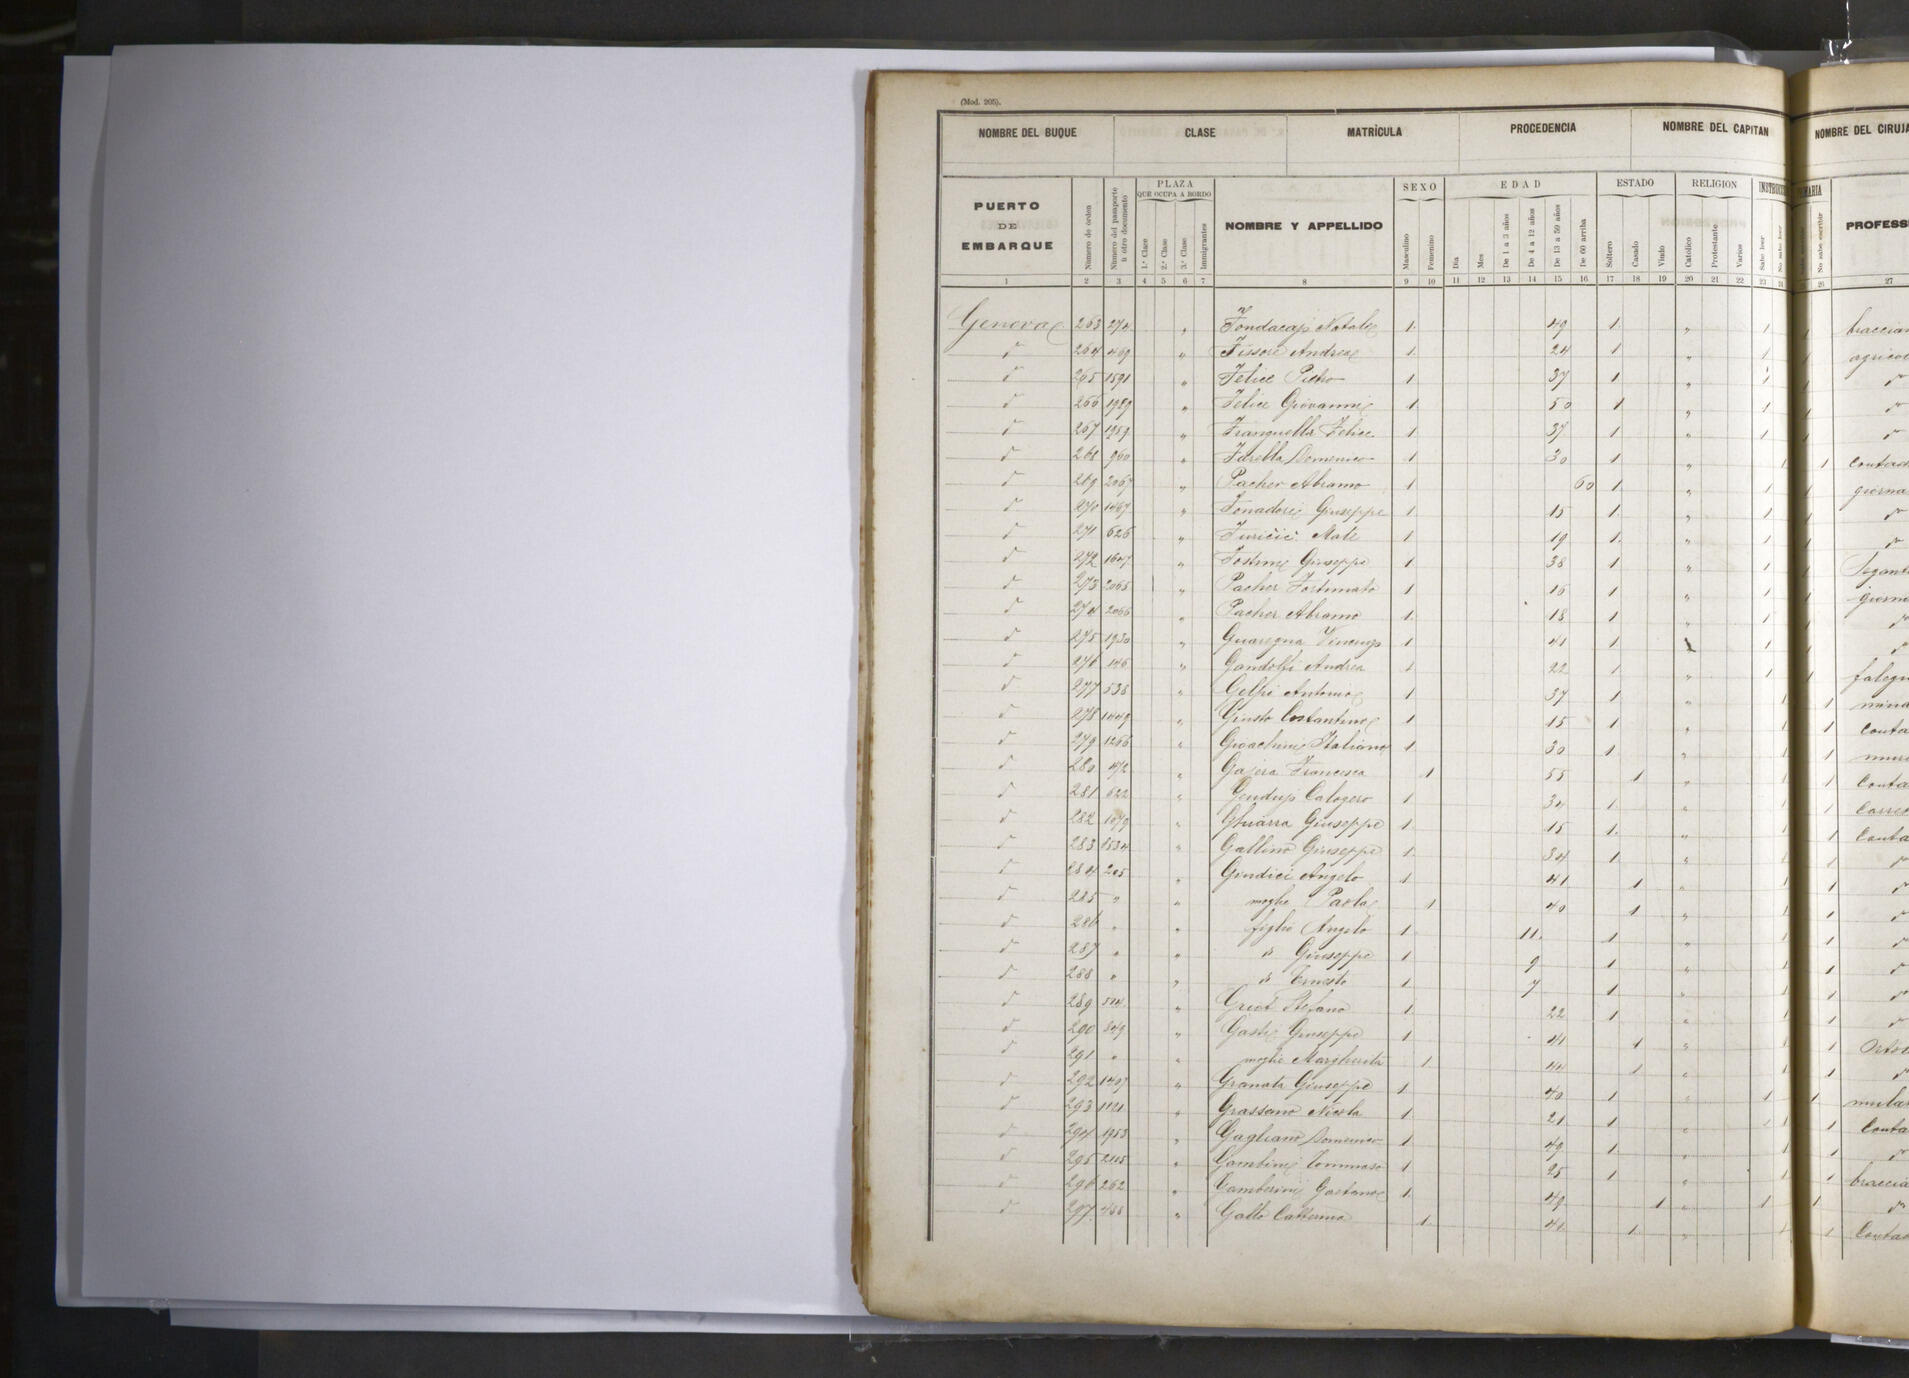 (Mod. 205).
NOMBRE DEL BUQUE CLASE MATRÍCULA PROCEDENCIA NOMBRE DEL CAPITAN NOMBRE DEL CIRUJA
PUERTO DE EMBARQUE Número de órden Número del pasaporte ú otro documento PLAZA QUE OCUPA A BORDO 1.ª Clase 2.ª Clase 3.ª Clase Inmigrantes NOMBRE Y APELLIDO SEXO Masculino Femenino EDAD Dia Mes De 1 a 3 años De 4 a 12 años De 13 a 59 años De 60 arriba ESTADO Soltero Casado Viudo RELIGION Católico Protestante Varios Sabe leer No sabe leer No sabe escribir PROFES
1 2 3 4 5 6 7 8 9 10 11 12 13 14 15 16 17 18 19 20 21 22 23 24 26 27
Genova 263 274 " Natale 1 49 1 " 1 1 braccian
d 264 469 " Fissore Andrea 1 24 1 " 1 1 agricol
d 265 1591 " Felice Pietro 1 37 1 " 1 1 d
d 266 1929 " Felice Giovanni 1 50 1 " 1 1 d
d 267 1959 " Felice 1 37 1 " 1 1 d
d 268 960 " Farella Domenico 1 30 1 " 1 1 Contad
d 269 2067 " Pacher Abramo 1 60 1 " 1 1 giorna
d 270 1467 " Fonadore Giuseppe 1 15 1 " 1 1 d
d 271 626 " Juričić Mate 1 19 1 " 1 1 d
d 272 1647 " Giuseppe 1 38 1 " 1 1
d 273 2065 " Pacher Fortunato 1 16 1 " 1 1 giorna
d 274 2066 " Pacher Abramo 1 18 1 " 1 1 d
d 275 1930 " Guaregna 1 41 1 1 1 d
d 276 146 " Gandolfi Andrea 1 22 1 " 1 1 falegn
d 277 538 " Gelfi Antonio 1 37 1 " 1 1 mina
d 278 1449 " Giusto Costantino 1 15 1 " 1 1 Conta
d 279 1266 " Gioachini Italiano 1 30 1 " 1 1 mura
d 280 472 " Gajera Francesca 1 55 1 " 1 1 Conta
d 281 622 " Calogero 1 34 1 " 1 1
d 282 1079 " Giuseppe 1 15 1 " 1 1 Conta
d 283 1534 " Gallino Giuseppe 1 34 1 " 1 1 d
d 284 205 " Giudici Angelo 1 41 1 " 1 1 d
d 285 " " moglie Paola 1 40 1 " 1 1 d
d 286 " " figlio Angelo 1 11 1 " 1 1 d
d 287 " " d Giuseppe 1 9 1 " 1 1 d
d 288 " " d Ernesto 1 7 1 " 1 1 d
d 289 514 " Griot Stefano 1 22 1 " 1 1 d
d 290 849 " Giuseppe 1 41 1 " 1 1
d 291 " " moglie Margherita 1 1 " 1 1 d
d 292 1407 " Granata Giuseppe 1 40 1 " 1 1
d 293 1121 " Grassano Nicola 1 21 1 " 1 1 Conta
d 294 1953 " Gagliano Domenico 1 49 1 " 1 1 d
d 295 2105 " Gambini Tommaso 1 25 1 " 1 1 braccia
d 296 262 " Gamberini Gaetano 1 49 1 " 1 1 d
d 297 488 " Gallo Catterina 1 41 1 " 1 1 Contad